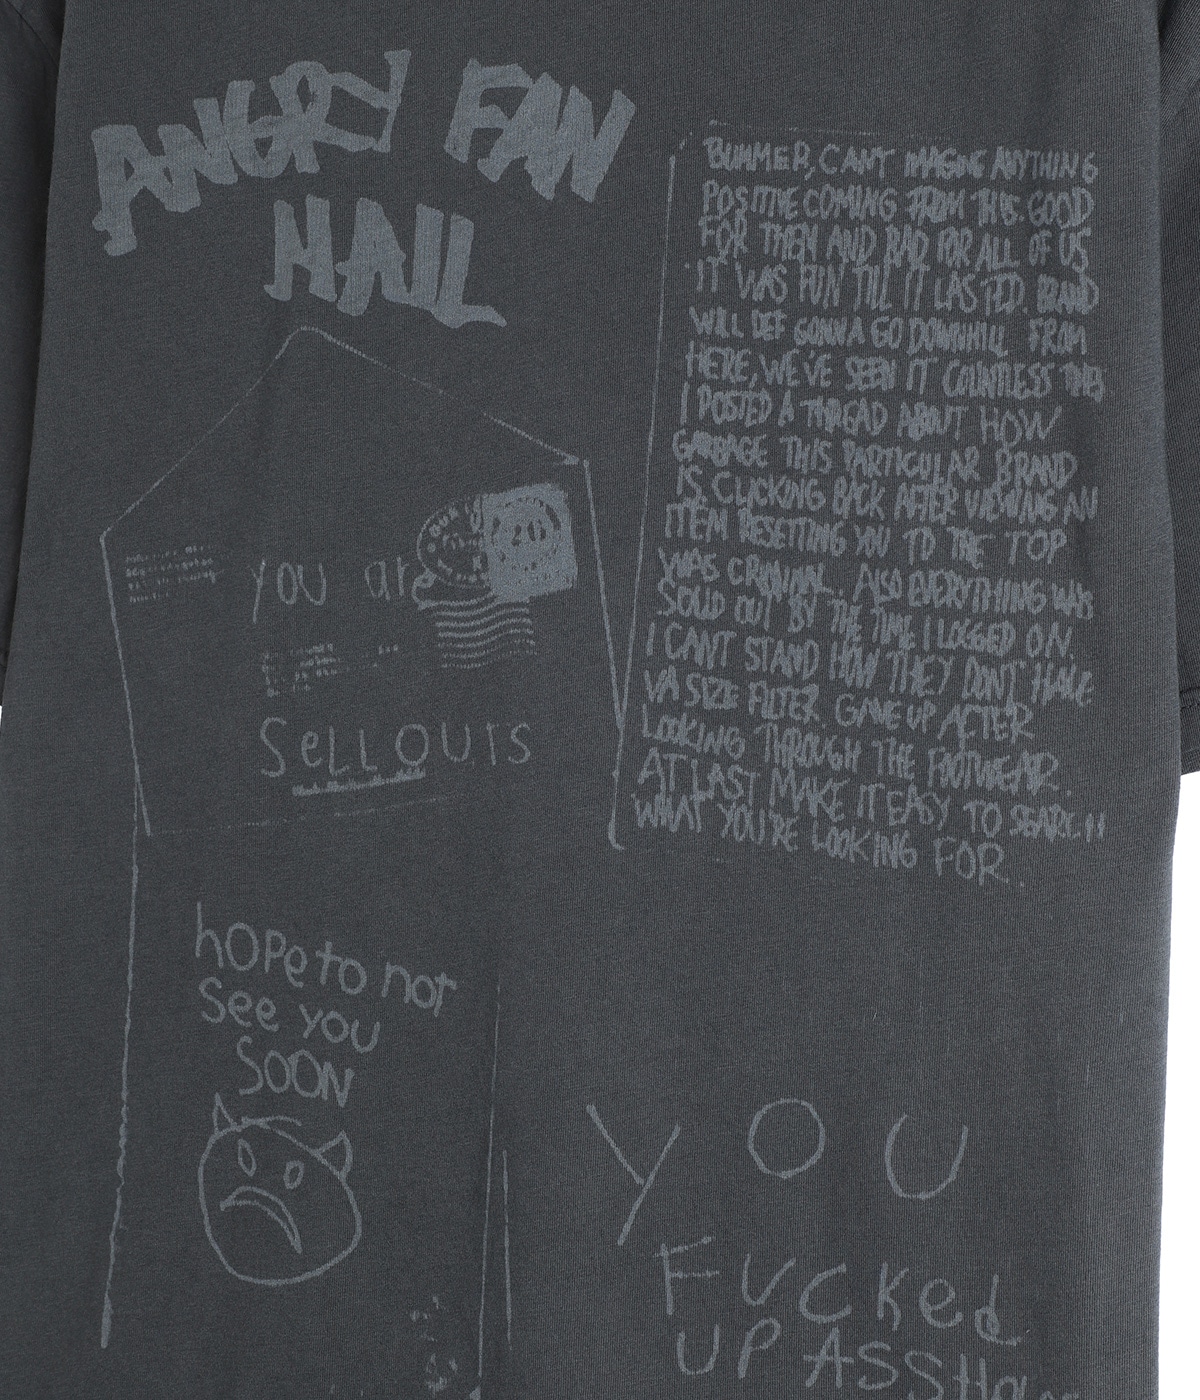 ANGRY FAN
HAIL
BUMMER, CANT IMAGINE ANYTHING
POSITIVE COMING FROM THIS. GOOD
FOR THEM AND BAD FOR ALL OF US
IT WAS FUN TILL IT LASTED. BRAND
WILL DEF GONNA GO DOWNHILL FROM
HERE, WE'VE SEEN IT COUNTLESS TIMES
I POSTED A THREAD ABOUT HOW
GARBAGE THIS PARTICULAR BRAND
IS. CLICKING BACK AFTER VIEWING AN
ITEM RESETTING YOU TO THE TOP
WAS CRIMINAL. ALSO EVERYTHING WAS
SOLD OUT BY THE TIME I LOGGED ON.
I CANT STAND HOW THEY DON'T HAVE
A SIZE FILTER. GAVE UP AFTER
LOOKING THROUGH THE FOOTWEAR.
AT LAST MAKE IT EASY TO SEARCH
WHAT YOU'RE LOOKING FOR.
20
you are
SeLLOUTS
hOPe to not
See you
SOON
YOU
FUCKed
UP ASSHO